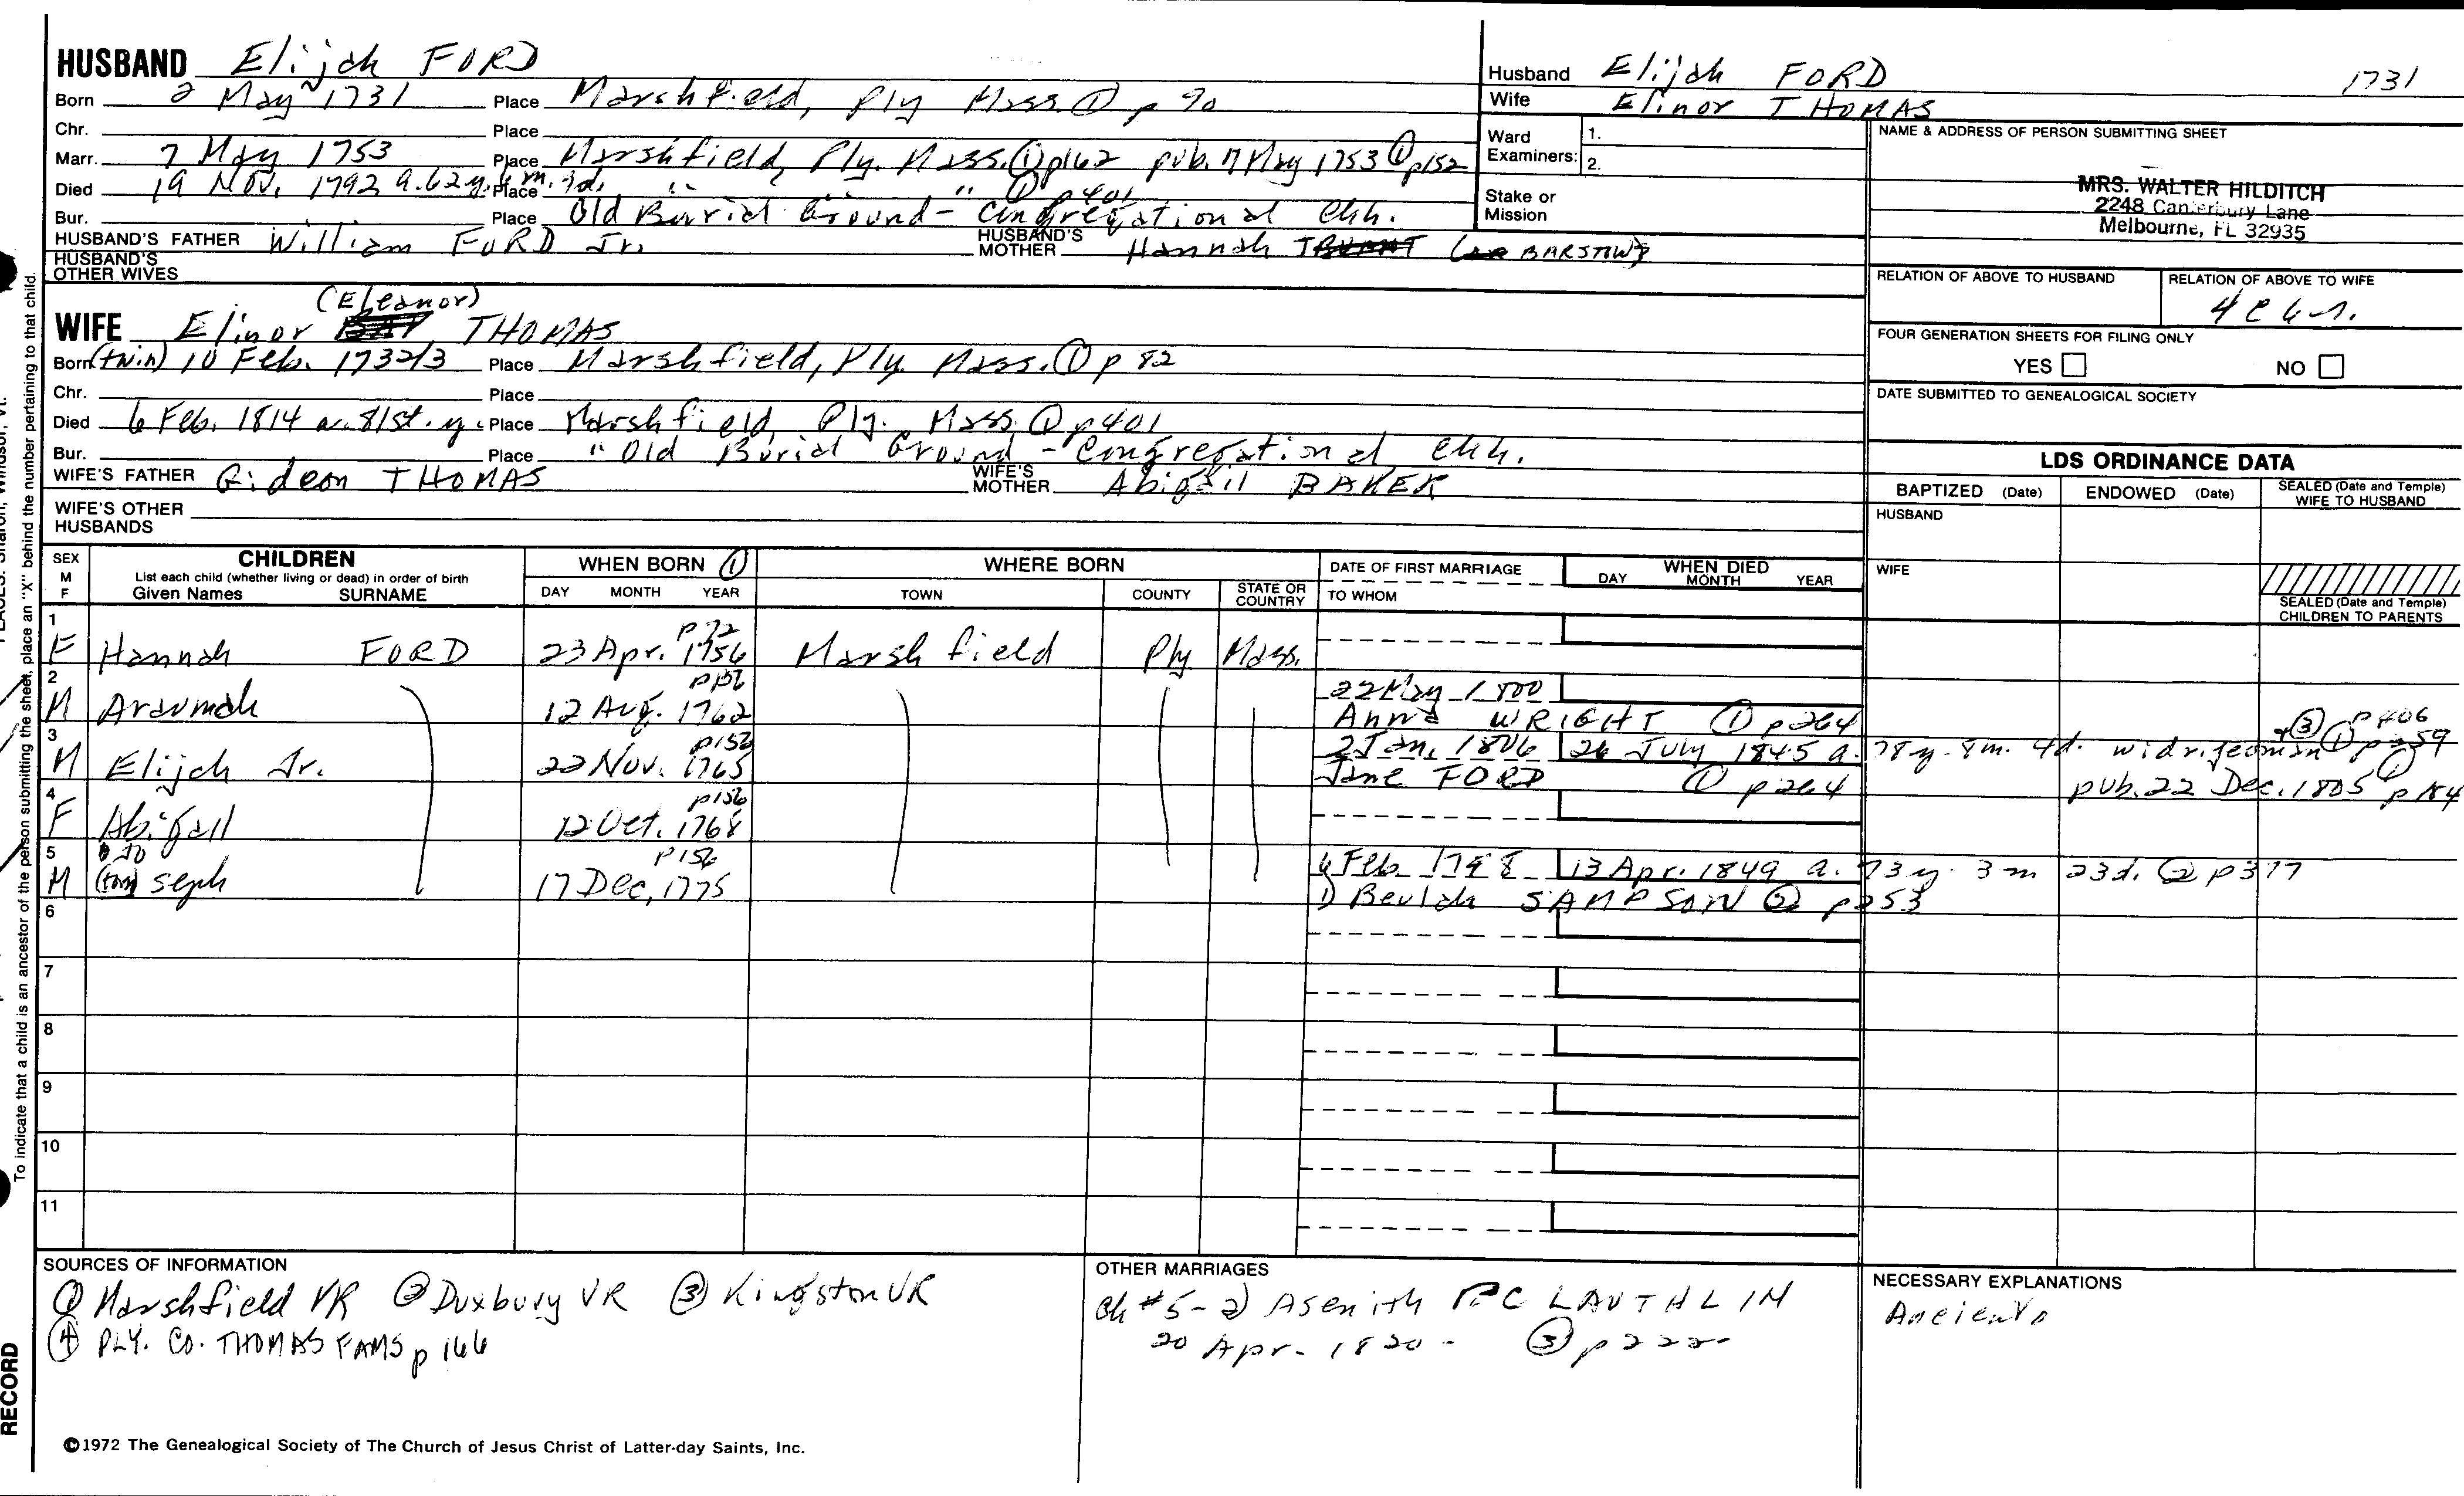 HUSBAND Elijah FORD
Born 2 May 1731 Place Marshfield, Ply Mass. ① p 90
Chr. Place
Marr. 7 May 1753 Place Marshfield, Ply. Mass. ① p162 pub. 7 May 1753 ① p152
Died 19 Nov. 1792 a. 62y. 6m. 9d. Place " " ① p401
Bur. Place Old Burial Ground - Congregational Chh.
HUSBAND'S FATHER William FORD Jr. HUSBAND'S MOTHER Hannah (or BARSTOW)
HUSBAND'S OTHER WIVES
(Eleanor)
WIFE Elinor THOMAS
Born (twin) 10 Feb. 1732/3 Place Marshfield, Ply. Mass. ① p 82
Chr. Place
Died 6 Feb. 1814 a. 81st. y. Place Marshfield, Ply. Mass ① p401
Bur. Place " Old Burial Ground - Congregational Chh.
WIFE'S FATHER Gideon THOMAS WIFE'S MOTHER Abigail BAKER
WIFE'S OTHER HUSBANDS
Husband Elijah FORD 1731
Wife Elinor THOMAS
Ward Examiners: 1.
2.
Stake or Mission
NAME & ADDRESS OF PERSON SUBMITTING SHEET
MRS. WALTER HILDITCH
2248 Canterbury Lane
Melbourne, FL 32935
RELATION OF ABOVE TO HUSBAND RELATION OF ABOVE TO WIFE
FOUR GENERATION SHEETS FOR FILING ONLY
YES NO
DATE SUBMITTED TO GENEALOGICAL SOCIETY
LDS ORDINANCE DATA
BAPTIZED (Date) ENDOWED (Date) SEALED (Date and Temple) WIFE TO HUSBAND
HUSBAND
WIFE
SEALED (Date and Temple) CHILDREN TO PARENTS
SEX M F CHILDREN
List each child (whether living or dead) in order of birth
Given Names SURNAME
WHEN BORN ①
DAY MONTH YEAR
WHERE BORN
TOWN COUNTY STATE OR COUNTRY
DATE OF FIRST MARRIAGE
TO WHOM
WHEN DIED
DAY MONTH YEAR
1 p 72
F Hannah FORD 23 Apr. 1756 Marshfield Ply Mass.
2 p156 22 May 1800
M Araunah 12 Aug. 1762 Anna WRIGHT ① p264
+③ p406
3 p156 2 Jan. 1806 26 July 1845 a. 78y. 8m. 4d. widr. yeoman ① p359
M Elijah Jr. 22 Nov. 1765 Jane FORD ① p264 pub. 22 Dec. 1805 ① p184
4 p156
F Abigail 12 Oct. 1768
5 Jo p156 6 Feb. 1798 13 Apr. 1849 a. 73y. 3m 23d. ② p377
M seph 17 Dec, 1775 1) Beulah SAMPSON ② p253
6
7
8
9
10
11
SOURCES OF INFORMATION
① Marshfield VR ② Duxbury VR ③ Kingston VR
④ PLY. CO. THOMAS FAMS p 166
OTHER MARRIAGES
Ch #5 - 2) Asenith Mc LAUTHLIN
20 Apr. 1820 - ③ p 222
NECESSARY EXPLANATIONS
©1972 The Genealogical Society of The Church of Jesus Christ of Latter-day Saints, Inc.
To indicate that a child is an ancestor of the person submitting the sheet, place an "X" behind the number pertaining to that child.
RECORD